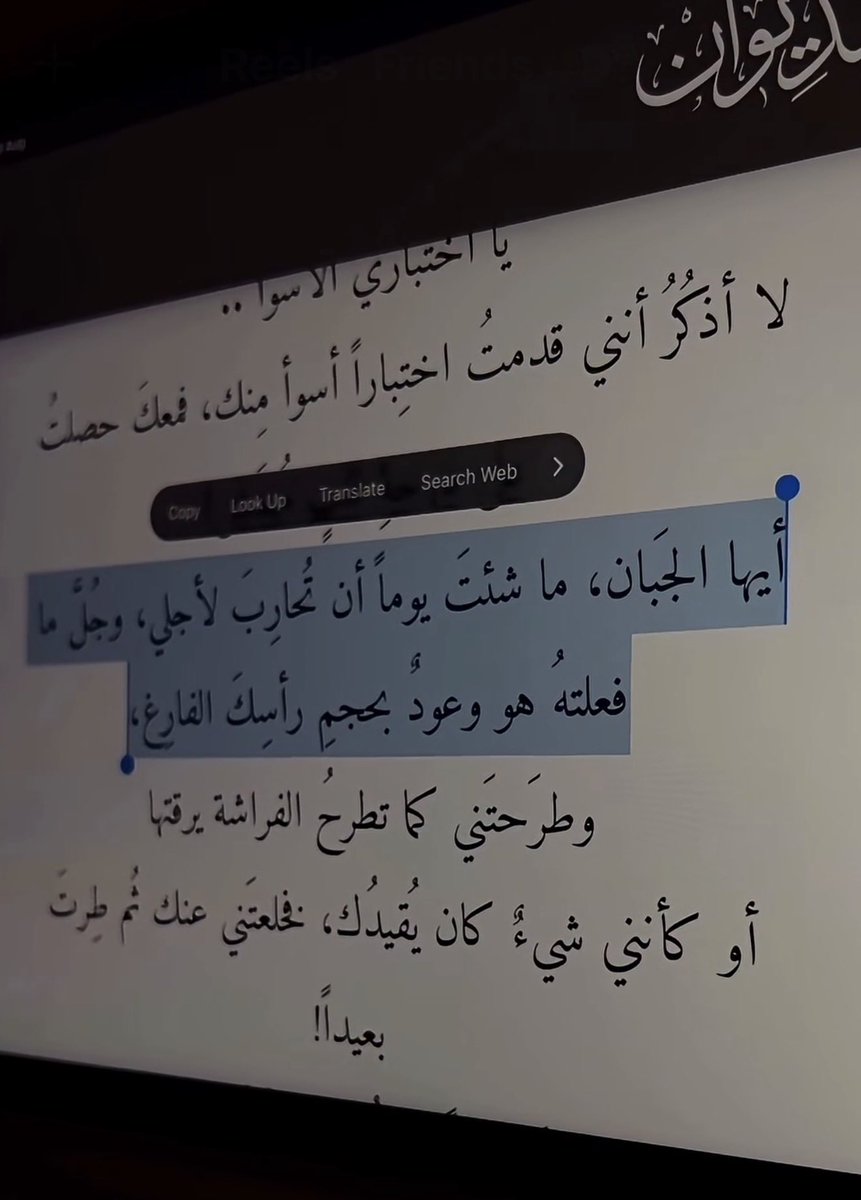 Reels Friends
يا اختباري الأسوأ ..
لا أذكُرُ أنني قدمتُ اختِباراً أسوأ مِنك، فمعكَ حصلتُ
Copy Look Up Translate Search Web >
أيها الجَبَان، ما شئتَ يوماً أن تُحارِبَ لأجلي، وجُلَّ ما
فعلتهُ هو وعودٌ بحجمِ رأسِكَ الفارِغ،
وطرَحتَني كما تطرحُ الفراشة يرقتها
أو كأنني شيءٌ كان يُقيدُك، فخلعتَني عنك ثُم طِرتَ
بعيداً!